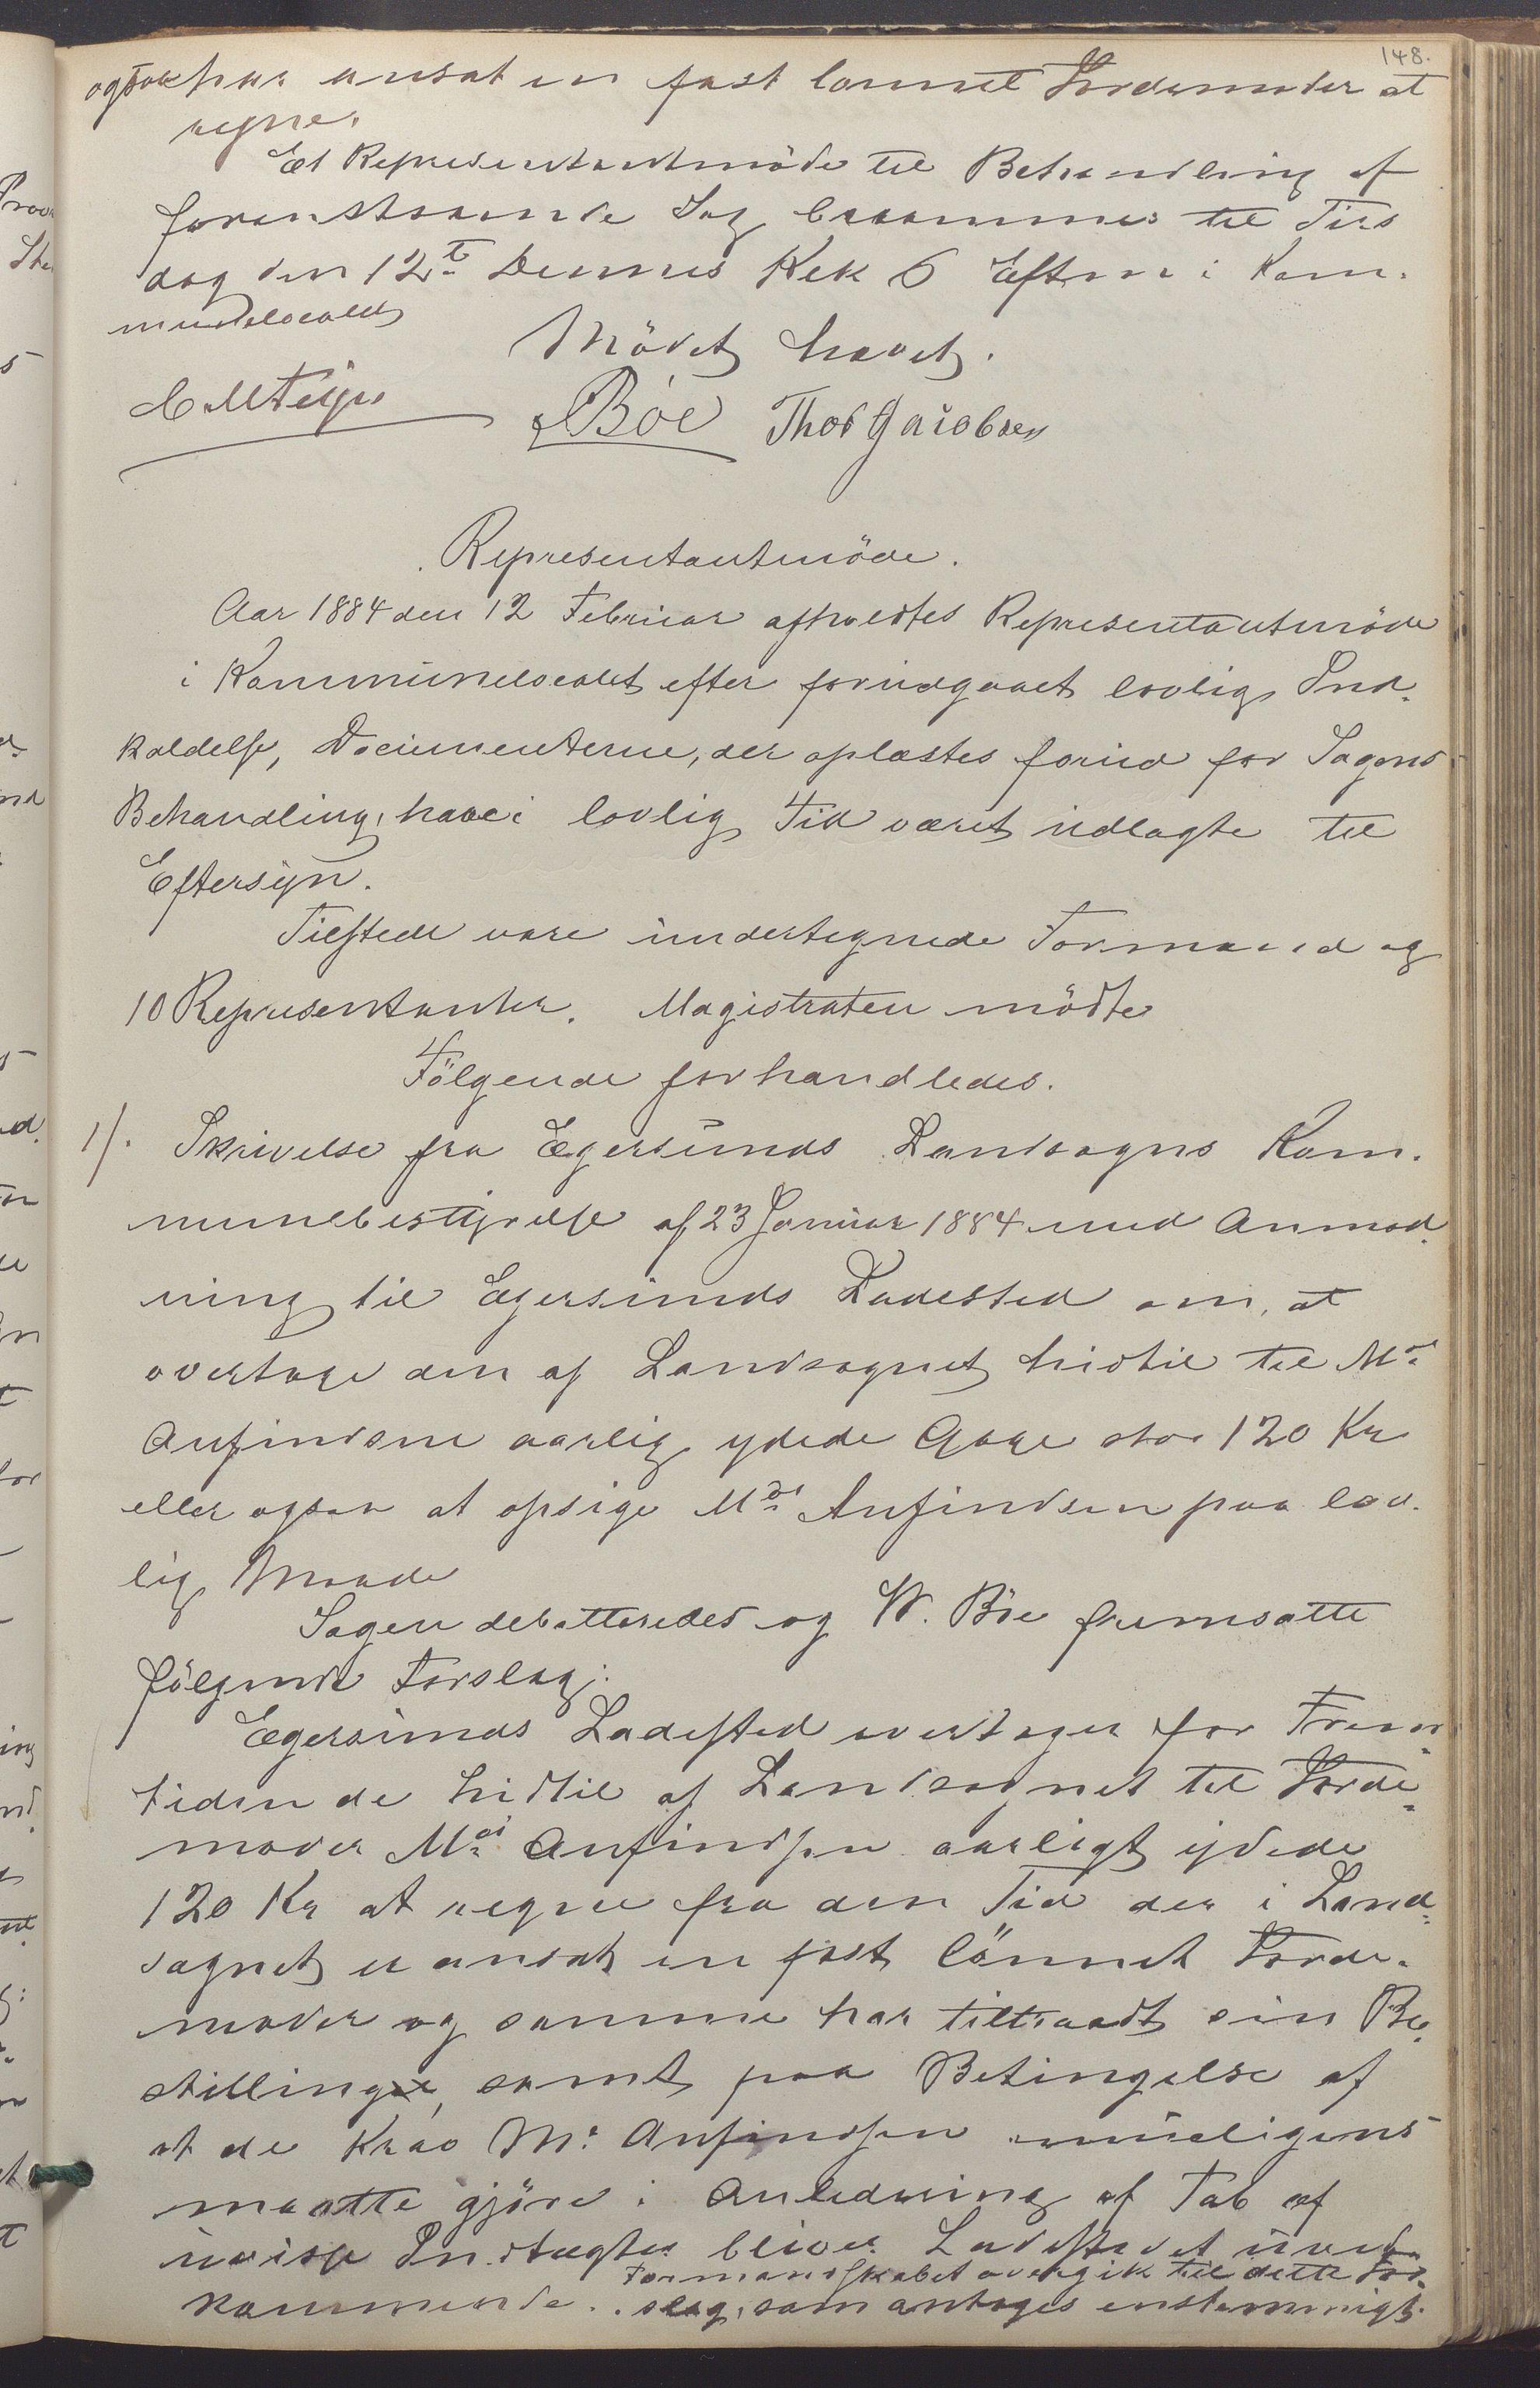 148.
ogsaa har ansat en fast lönnet Jordemoder at
regne.
Et Representantmöde til Behandling af
foranstaaende Sag berammes til Tirs
dag den 12te Dennes Klk 6 Efterm i Kom-
munelocalet
Mödet hævet.
Böe Thor Jacobsen
Representantmöde.
Aar 1884 den 12 Februar afholdtes Representantmöde
i Kommunelocalet efter forudgaaet lovlig Ind-
kaldelse, Documenterne, der oplæstes forud for Sagens
Behandling, have i lovlig Tid været udlagte til
Eftersyn.
Tilstede vare undertegnede Formand og
10 Representanter. Magistraten mödte
Fölgende forhandledes.
1/. Skrivelse fra Egersunds Landsogns Kom-
munebestyrelse af 23 Januar 1884 med Anmod-
ning til Egersunds Ladested om, at
overtage den af Landsognet hidtil til Md
Anfindsen aarlig ydede Gage stor 120 Kr
eller ogsaa at opsige Md Anfindsen paa lov-
lig Maade
Sagen debatteredes og W. Böe fremsatte
fölgende Forslag:
Egersunds Ladested overtager for Frem-
tiden de hidtil af Landsognet til Jorde-
moder Md Anfindsen aarligt ydede
120 Kr at regne fra den Tid der i Land-
sognet er ansat en fast lönnet Jorde-
moder og samme har tiltraadt sin Be-
stilling, samt paa Betingelse af
at de Krav M: Anfindsen mueligens
maatte gjöre i Anledning af Tab af
uvisse Indtægter bliver Ladestedet uved-
kommende. Formandskabet overgik til dette For-
slag, som antoges enstemmigt.